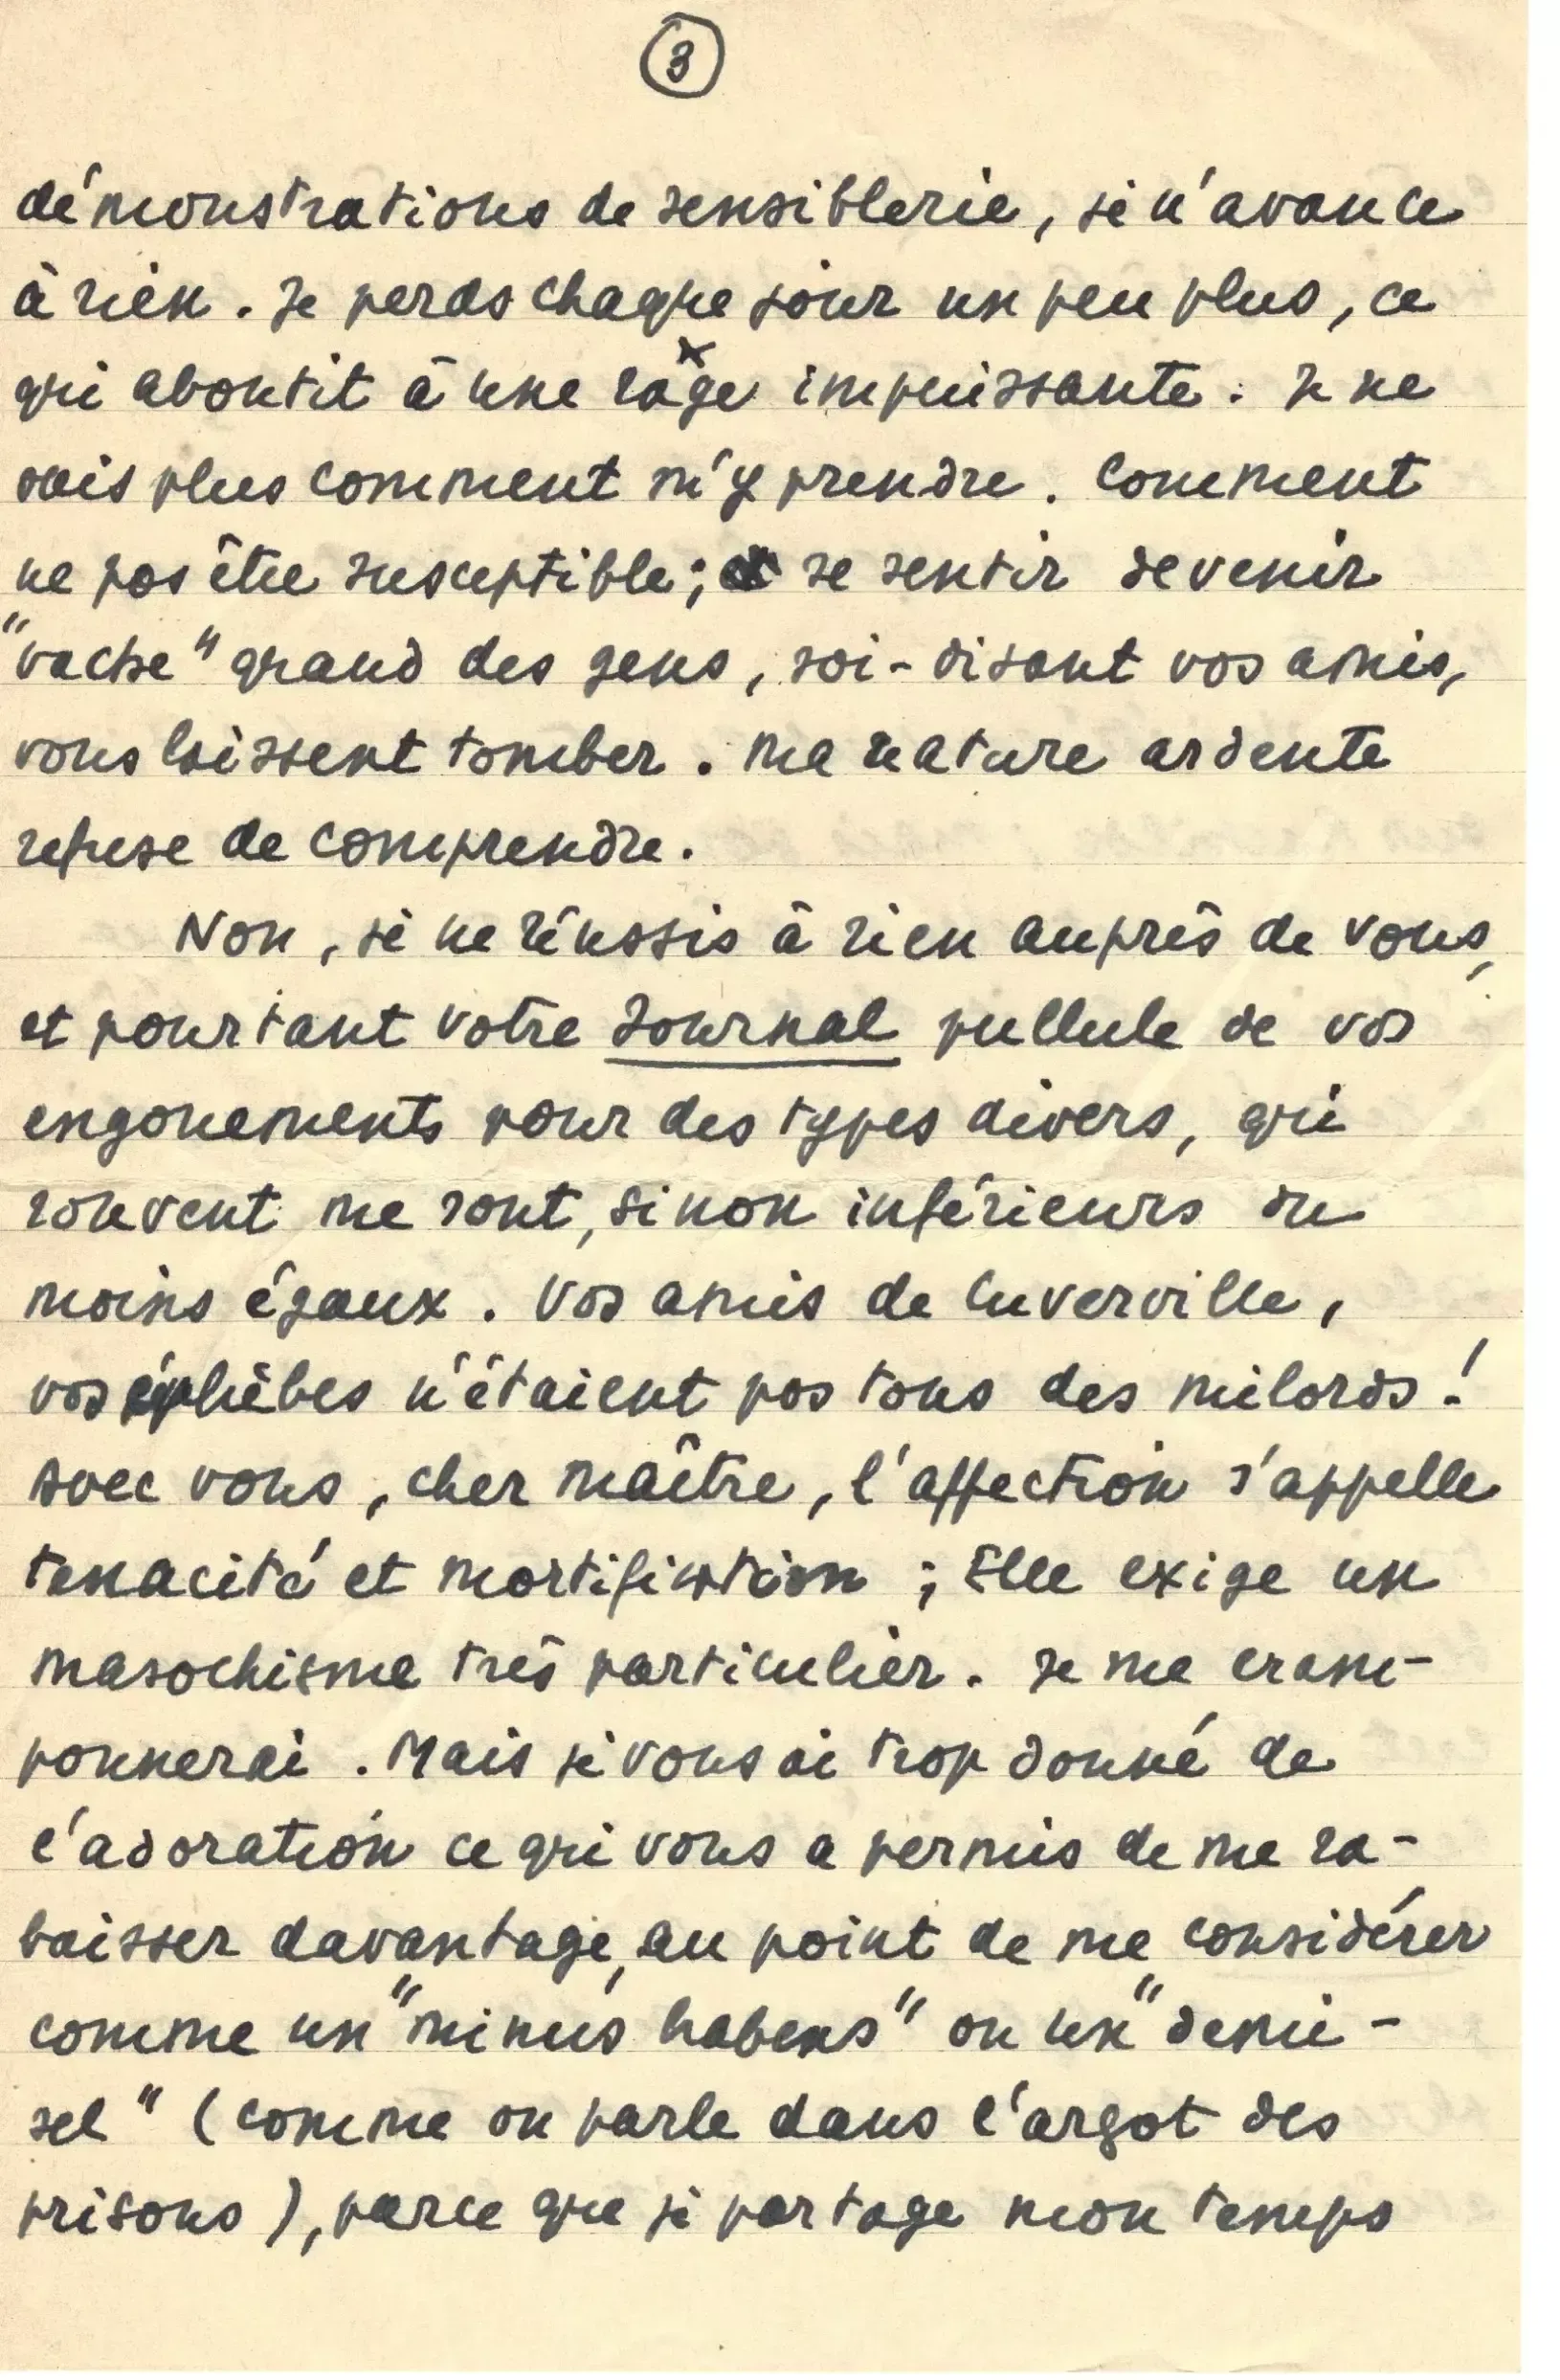 3
démonstrations de sensiblerie, je n'avance
à rien. Je perds chaque jour un peu plus, ce
qui aboutit à une rage impuissante. Je ne
sais plus comment m'y prendre. Comment
ne pas être susceptible; se sentir devenir
"vache" quand des gens, soi-disant vos amis,
vous laissent tomber. Ma nature ardente
refuse de comprendre.
Non, je ne réussis à rien auprès de vous,
et pourtant votre Journal pullule de vos
engouements pour des types divers, qui
souvent me sont, sinon inférieurs du
moins égaux. Vos amis de Cuverville,
vos éphèbes n'étaient pas tous des milords!
Avec vous, cher Maître, l'affection s'appelle
tenacité et mortification; Elle exige un
masochisme très particulier. Je me cram-
ponnerai. Mais je vous ai trop donné de
l'adoration ce qui vous a permis de me ra-
baisser davantage, au point de me considérer
comme un "minus habens" ou un "demi-
sel" (comme on parle dans l'argot des
prisons), parce que je partage mon temps